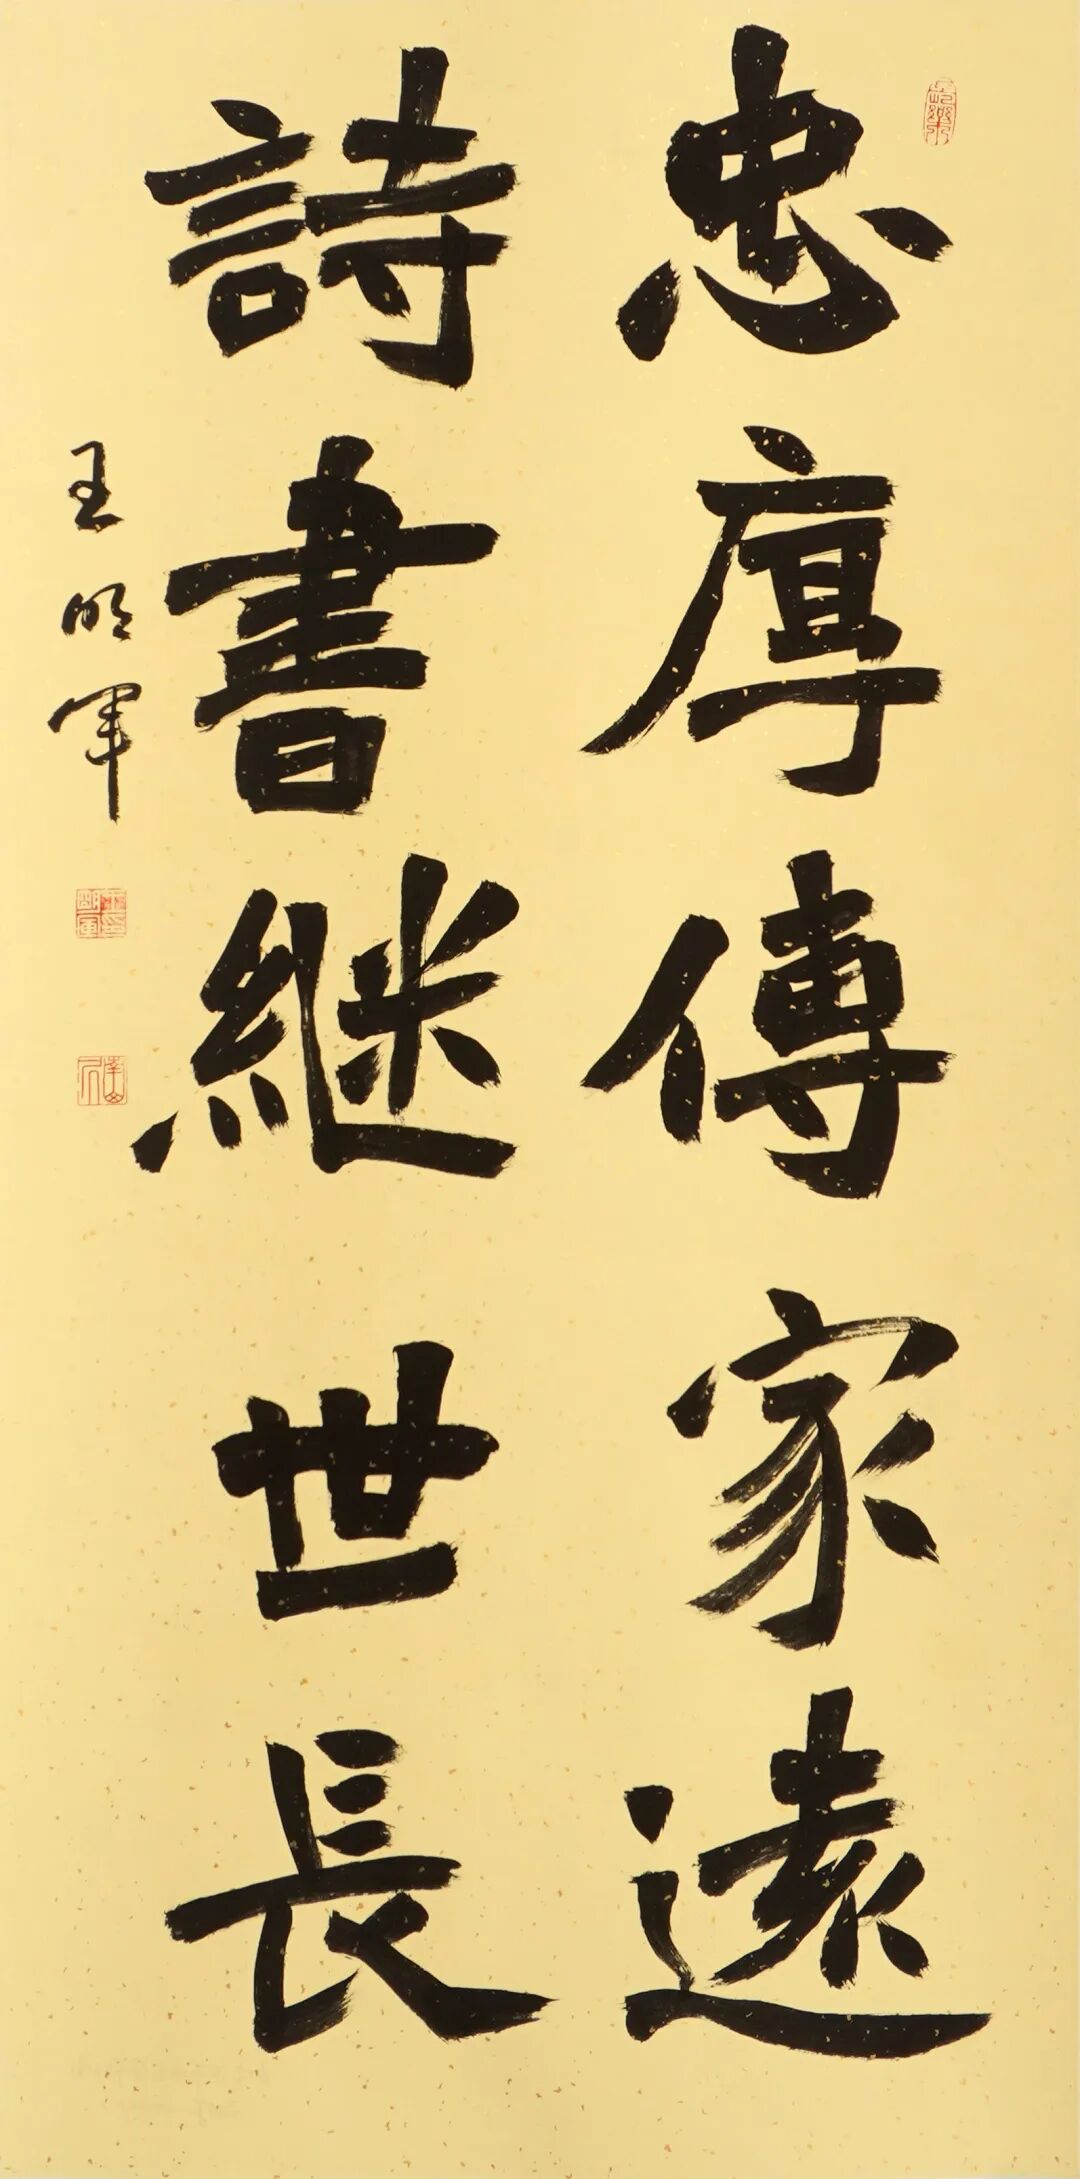 忠厚傳家遠
詩書継世長
王明軍